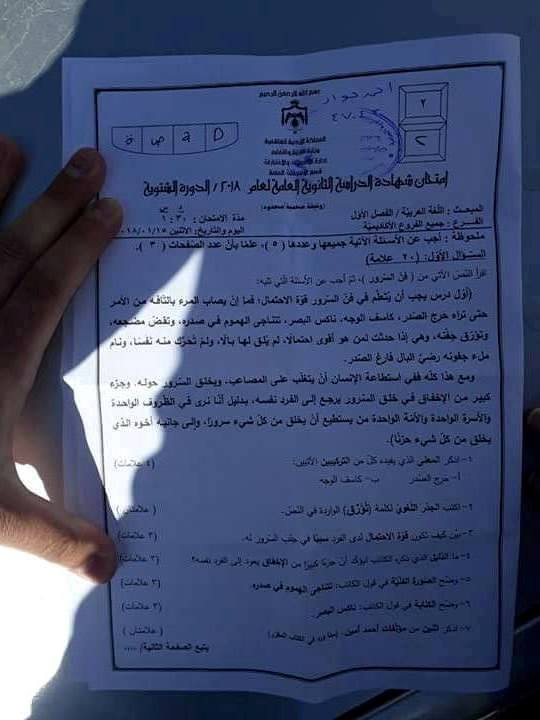 بسم الله الرحمن الرحيم
٢
٢
احمد جواد
ة ص ه D
المملكة الأردنية الهاشمية
وزارة التربية والتعليم
إدارة الامتحانات والاختبارات
قسم الامتحانات العامة
امتحان شهادة الدراسة الثانوية العامة لعام ٢٠١٨ / الدورة الشتوية
(وثيقة محمية/محدود)
د س
المبحث : اللغة العربية / الفصل الأول
مدة الامتحان: ٣٠ : ١
الفرع : جميع الفروع الأكاديمية
اليوم والتاريخ: الاثنين ٢٠١٨/٠١/١٥
ملحوظة : أجب عن الأسئلة الآتية جميعها وعددها ( ٥ )، علمًا بأن عدد الصفحات ( ٣ ).
السؤال الأول: (٢٠ علامة)
اقرأ النص الآتي من ( فنّ السّرور )، ثمّ أجب عن الأسئلة التي تليه:
(أوّل درس يجب أن يُتعلّم في فنّ السّرور قوّة الاحتمال؛ فما إنْ يصاب المرء بالتّافه من الأمر
حتى تراه حرج الصّدر، كاسف الوجه، ناكس البصر، تتناجى الهموم في صدره، وتقضّ مضجعه،
وتؤرّق جفنَه، وهي إذا حدثت لمن هو أقوى احتمالًا، لم يُلق لها بالًا، ولمْ تُحرّك منه نفسًا، ونام
ملء جفونه رضيّ البال فارغ الصّدر.
ومع هذا كلّه ففي استطاعة الإنسان أنْ يتغلّب على المصاعب، ويخلق السّرور حوله، وجزء
كبير من الإخفاق في خلق السّرور يرجع إلى الفرد نفسه، بدليل أنّا نرى في الظّروف الواحدة
والأسرة الواحدة والأمّة الواحدة من يستطيع أنْ يخلق من كلّ شيء سرورًا، وإلى جانبه أخوه الذي
يخلق من كلّ شيء حزنًا).
١- اذكر المعنى الذي يفيده كلّ من التركيبين الآتيين: (٤ علامات)
أ- حرج الصّدر ب- كاسف الوجه
٢- اكتب الجذر اللغويّ لكلمة (تُؤرّق) الواردة في النصّ. (علامتان)
٣- بيّن كيف تكون قوّة الاحتمال لدى الفرد سببًا في جلب السّرور له. (٣ علامات)
٤- ما الدّليل الذي ذكره الكاتب ليؤكّد أنّ جزءًا كبيرًا من الإخفاق يعود إلى الفرد نفسه؟ (٣ علامات)
٥- وضّح الصّورة الفنيّة في قول الكاتب: تتناجى الهموم في صدره. (٣ علامات)
٦- وضّح الكناية في قول الكاتب: ناكس البصر. (٣ علامات)
٧- اذكر اثنين من مؤلّفات أحمد أمين. (مما ورد في الكتاب المقرّر) (علامتان)
يتبع الصفحة الثانية/ ....